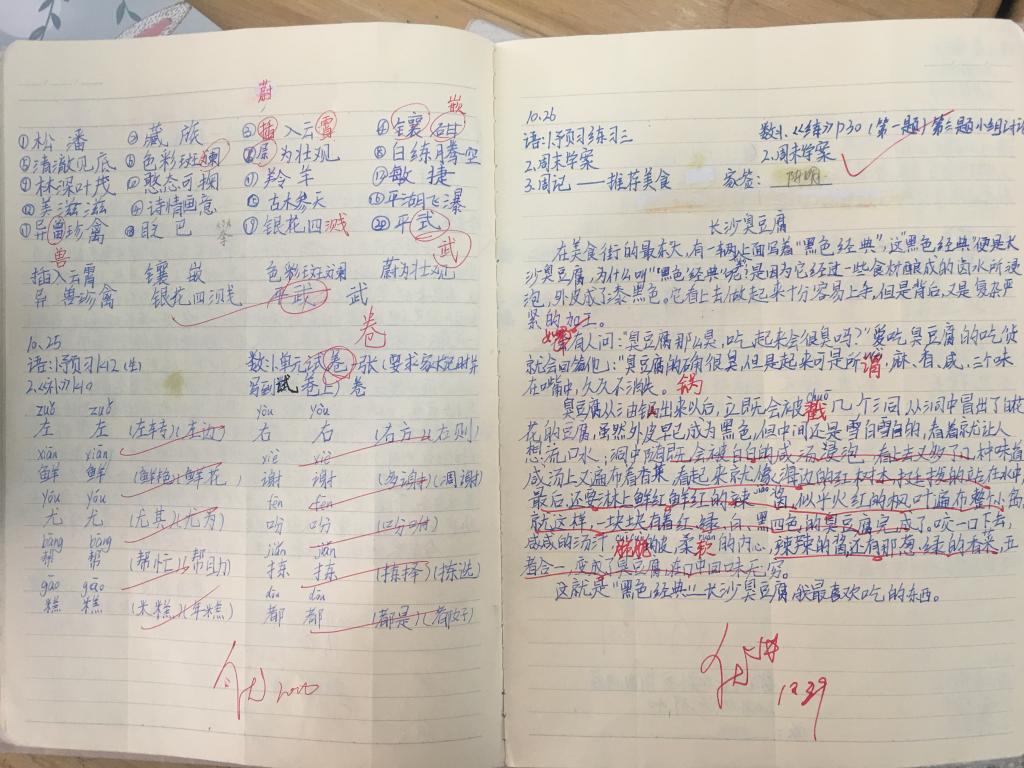 蔚
嵌
①松潘 ②藏族 ③插入云霄 ④镶嵌
⑤清澈见底 ⑥色彩斑斓 为壮观 ⑧白练腾空
⑨林深叶茂 ⑩憨态可掬 羚羊 敏捷
美滋滋 诗情画意 古木参天 平湖飞瀑
异兽珍禽 眨巴 银花四溅 ⑳平武
兽 武
插入云霄 镶嵌 色彩斑斓 蔚为壮观
异兽珍禽 银花四溅 平武 武
卷
10.25
语:1.预习12(生) 数:1.单元试卷1张(要求家长把时
写到试卷上) 卷
zuǒ zuǒ yòu yòu
左 左 (左转)(左边) 右 右 (右方)(右则)
xiān xiān xiè xiè
鲜 鲜 (鲜艳)(鲜花) 谢 谢 (多谢)(凋谢)
yóu yóu fēn fēn
尤 尤 (尤其)(尤为) 吩 吩 (吩咐)
bāng bāng jiǎn jiǎn
帮 帮 (帮忙)(帮助) 拣 拣 (拣择)(拣选)
gāo gāo dōu dōu
糕 糕 (米糕)(年糕) 都 都 (都是)(都好)
10.26
语:1.预习练习三 数:1.《练》P30(第一题)第三题小组讨论
2.周末学案 2.周末学案
3.周记——推荐美食 家签:
长沙臭豆腐
在美食街的最东头,有一辆上面写着"黑色经典",这"黑色经典"便是长
沙臭豆腐,为什么叫"黑色经典"呢?是因为已经过一些食材酿成的卤水所浸
泡,外皮成了漆黑色。它看上去做起来十分容易上手,但是背后,又是复杂严
紧的加工。
如果有人问:"臭豆腐那么臭,吃起来会很臭吗?"爱吃臭豆腐的吃货
就会回答他:"臭豆腐的确很臭,但是起来可是所谓,麻、香、咸、三个味
在嘴中,久久不消失。 锅
chuō
臭豆腐从油锅出来以后,立即会被戳几个洞,从洞中冒出了白花
花的豆腐,虽然外皮早已成为黑色,但中间还是雪白雪白的,看着就让人
想流口水;洞中随既会被白白的咸汤浸泡,看上去又多了几种味道
咸汤上又遍布着香菜,看起来就像海边的红树林,村庄挨的站在水中,
最后,还要淋上鲜红鲜红的辣酱,似乎火红的枫叶遍布整个岛
就这样,一块块有着红、绿、白、黑四色的臭豆腐完成了。咬一口下去,
咸咸的汤汁,脆脆的皮,柔软的内心,辣辣的酱还有那葱绿的香菜,五
者合一,变成了臭豆腐在口中回味无穷。
这就是"黑色经典"——长沙臭豆腐,我最喜欢吃的东西。